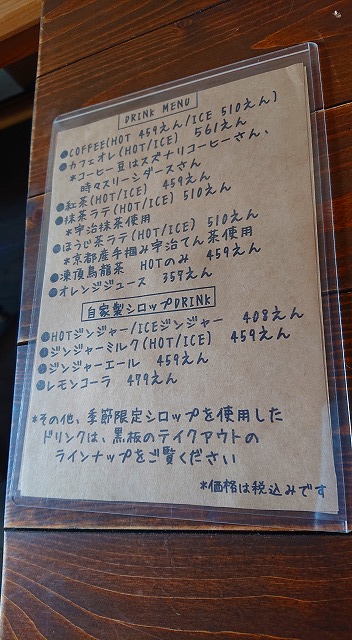 DRINK MENU
●COFFEE(HOT 459えん/ICE 510えん)
●カフェオレ(HOT/ICE) 561えん
*コーヒー豆はスズナリコーヒーさん、
時々スリーシダースさん
●紅茶(HOT/ICE) 459えん
●抹茶ラテ(HOT/ICE) 510えん
*宇治抹茶使用
●ほうじ茶ラテ(HOT/ICE) 510えん
*京都産手摘み宇治てん茶使用
●凍頂烏龍茶 HOTのみ 459えん
●オレンジジュース 357えん
自家製シロップDRINK
●HOTジンジャー/ICEジンジャー 408えん
●ジンジャーミルク(HOT/ICE) 459えん
●ジンジャーエール 459えん
●レモンコーラ 479えん
*その他、季節限定シロップを使用した
ドリンクは、黒板のテイクアウトの
ラインナップをご覧ください
*価格は税込みです